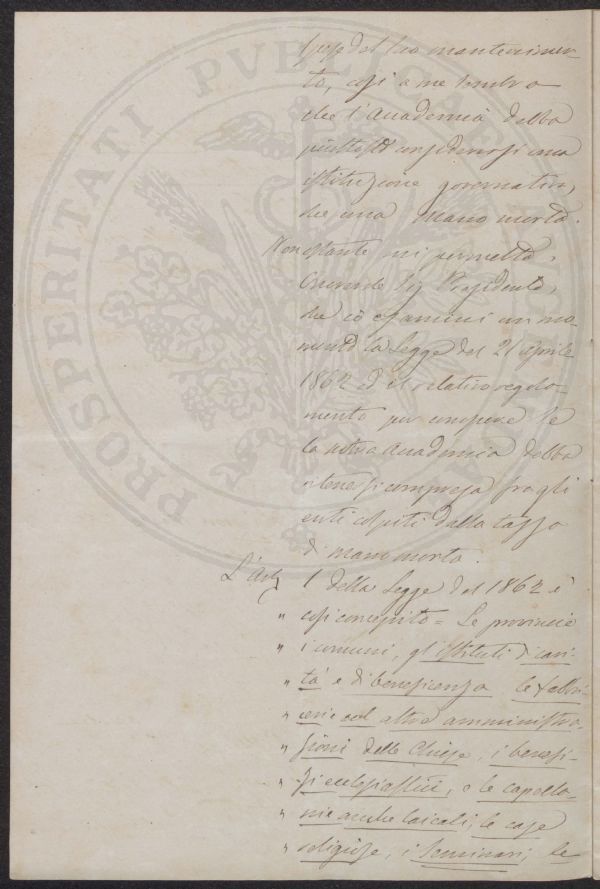 spese del suo mantenimen-
to, così a me sembra
che l'Accademia debba
piuttosto considerarsi una
istituzione governativa,
che una mano morta.
Nonostante mi permetta,
Onorevole Sig. Presidente,
che io esamini un mo-
mento la Legge del 21 Aprile
1862 ed il relativo regola-
mento per conoscere se
la nostra Accademia debba
ritenersi compresa fra gli
enti colpiti dalla tassa
di mano morta.
L'Art. 1 della Legge del 1862 è
" così concepito = Le provincie
" i comuni, gl'istituti di cari-
" tà e di beneficenza le fabbri-
" cerie ed altre amministra-
" zioni delle Chiese, i benefi-
" zi ecclesiastici, e le cappella-
" nie anche laicali, le case
" religiose, i seminari, le
PROSPERITATI PUBLICAE